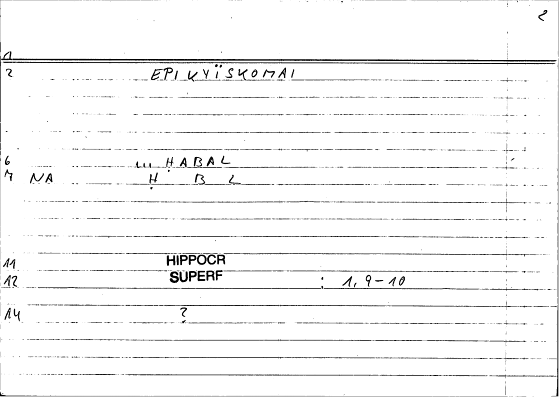 2
1
2 EPIKYÏSKOMAI
6 ḤABAL
7 NA Ḥ B L
11 HIPPOCR
12 SUPERF : 1, 9-10
14 ?